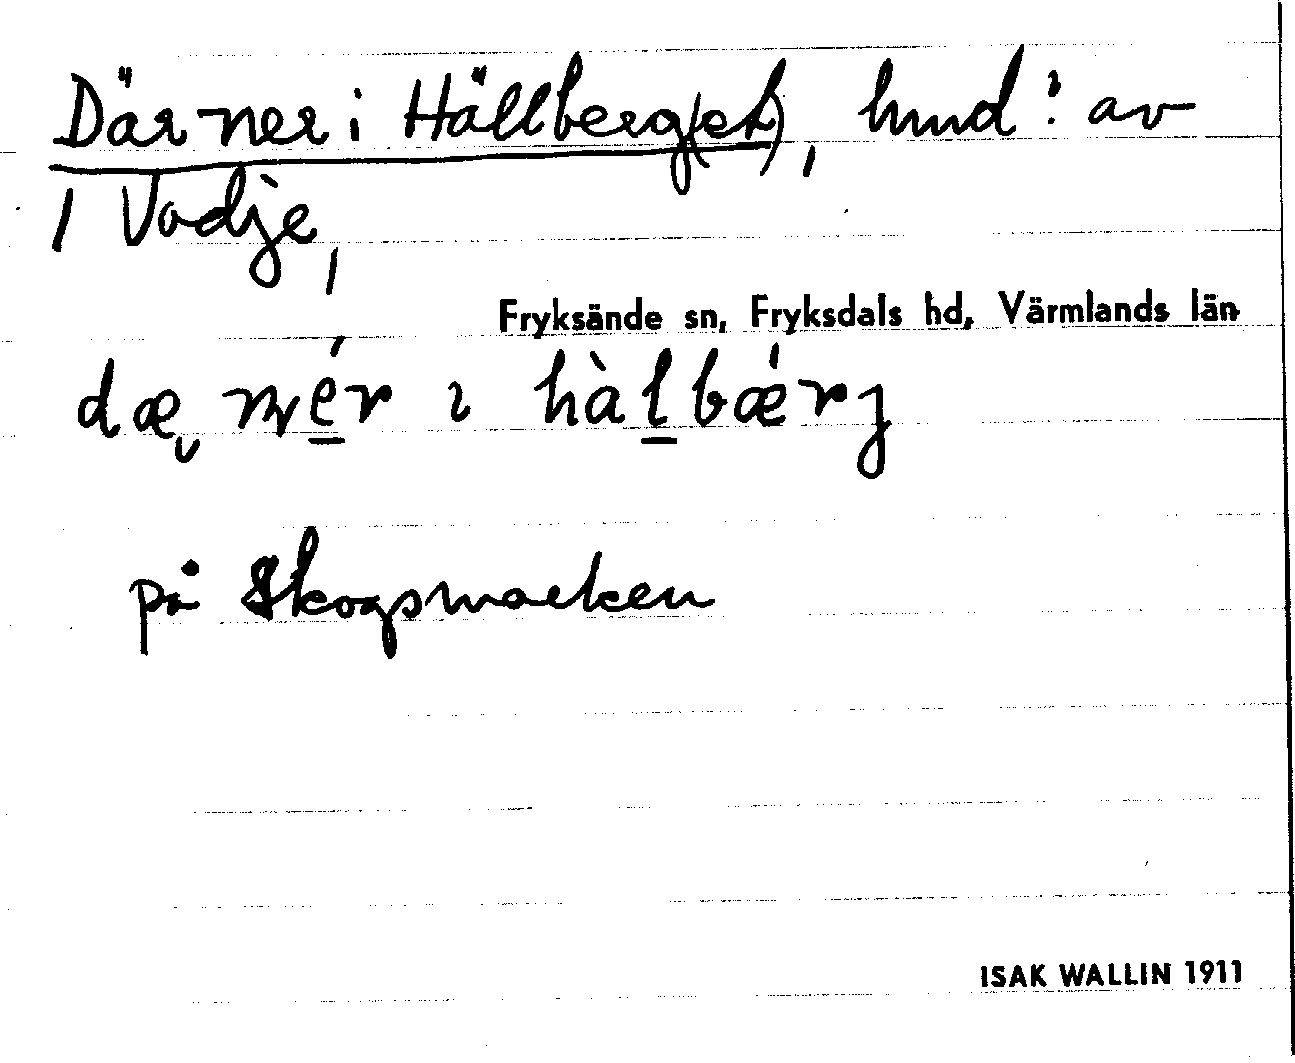 Där ner i Hällberg(et), hmd: av
/ Vadje,
Fryksände sn, Fryksdals hd, Värmlands län
dæ nér ı hàlbǽrj
på Skogsmarken
ISAK WALLIN 1911